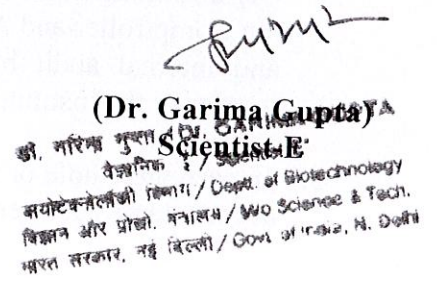 (Dr. Garima Gupta)
Scientist-E
डॉ. गरिमा गुप्ता / Dr. GARIMA GUPTA
वैज्ञानिक ई / Scientist 'E'
बायोटेक्नोलॉजी विभाग / Deptt. of Biotechnology
विज्ञान और प्रौद्यो. मंत्रालय / M/o Science & Tech.
भारत सरकार, नई दिल्ली / Govt. of India, N. Delhi